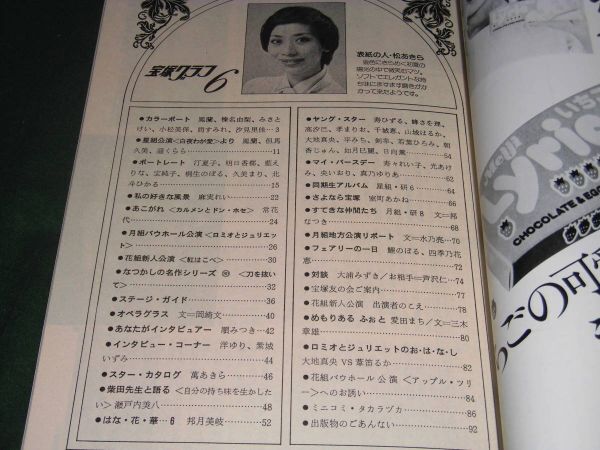 宝塚グラフ6
表紙の人・松あきら
金色にきらめく初夏の
陽光の中で微笑むマツ。
ソフトでエレガントな持
ち味にますます磨きがか
かって来たようです。
●カラーポート 鳳蘭、榛名由梨、みさと
けい、小松美保、順すみれ、汐見里佳…3
●星組公演〈白夜わが愛〉より 鳳蘭、但馬
久美、遥くらら………11
●ポートレート 汀夏子、明日香都、藍え
りな、宝純子、桐生のぼる、久美まり、北
斗ひかる………15
●私の好きな風景 麻実れい………22
●あこがれ〈カルメンとドン・ホセ〉常花
代………24
●月組バウホール公演〈ロミオとジュリエッ
ト〉………26
●花組新人公演〈紅はこべ〉………30
●なつかしの名作シリーズ 〈刀を抜い
て〉………32
●ステージ・ガイド………36
●オペラグラス 文＝岡崎文………40
●あなたがインタビュアー 順みつき…42
●インタビュー・コーナー 洋ゆり、紫城
いずみ………44
●スター・カタログ 萬あきら………46
●柴田先生と語る〈自分の持ち味を生かした
い〉瀬戸内美八………48
●はな・花・華…6 邦月美岐………52
●ヤング・スター 寿ひずる、峰さを理、
高汐巴、季まりお、千城恵、山城はるか、
大地真央、平みち、剣幸、若葉ひろみ、朝
香じゅん、如月巳麗、日向薫………54
●マイ・バースデー 寿々れい子、光あけ
み、央いおり、真乃ゆりあ………62
●同期生アルバム 星組・研6………64
●さよなら宝塚 室町あかね………66
●すてきな仲間たち 月組・研8 文＝邦
なつき………68
●月組地方公演リポート 文＝水乃亮…70
●フェアリーの一日 鯉のぼる、四季乃花
恵………72
●対談 大浦みずき／お相手＝芦沢仁…74
●宝塚友の会ご案内………77
●花組新人公演 出演者のこえ………78
●めもりある ふぉと 愛田まち／文＝三木
章雄………80
●ロミオとジュリエットのお・は・な・し
大地真央 VS 葦笛るか………82
●花組バウホール公演〈アップル・ツリ
ー〉へのお誘い………84
●ミニコミ・タカラヅカ………86
●出版物のごあんない………92
いちご
Lyric
CHOCOLATE & EGG
ごの可